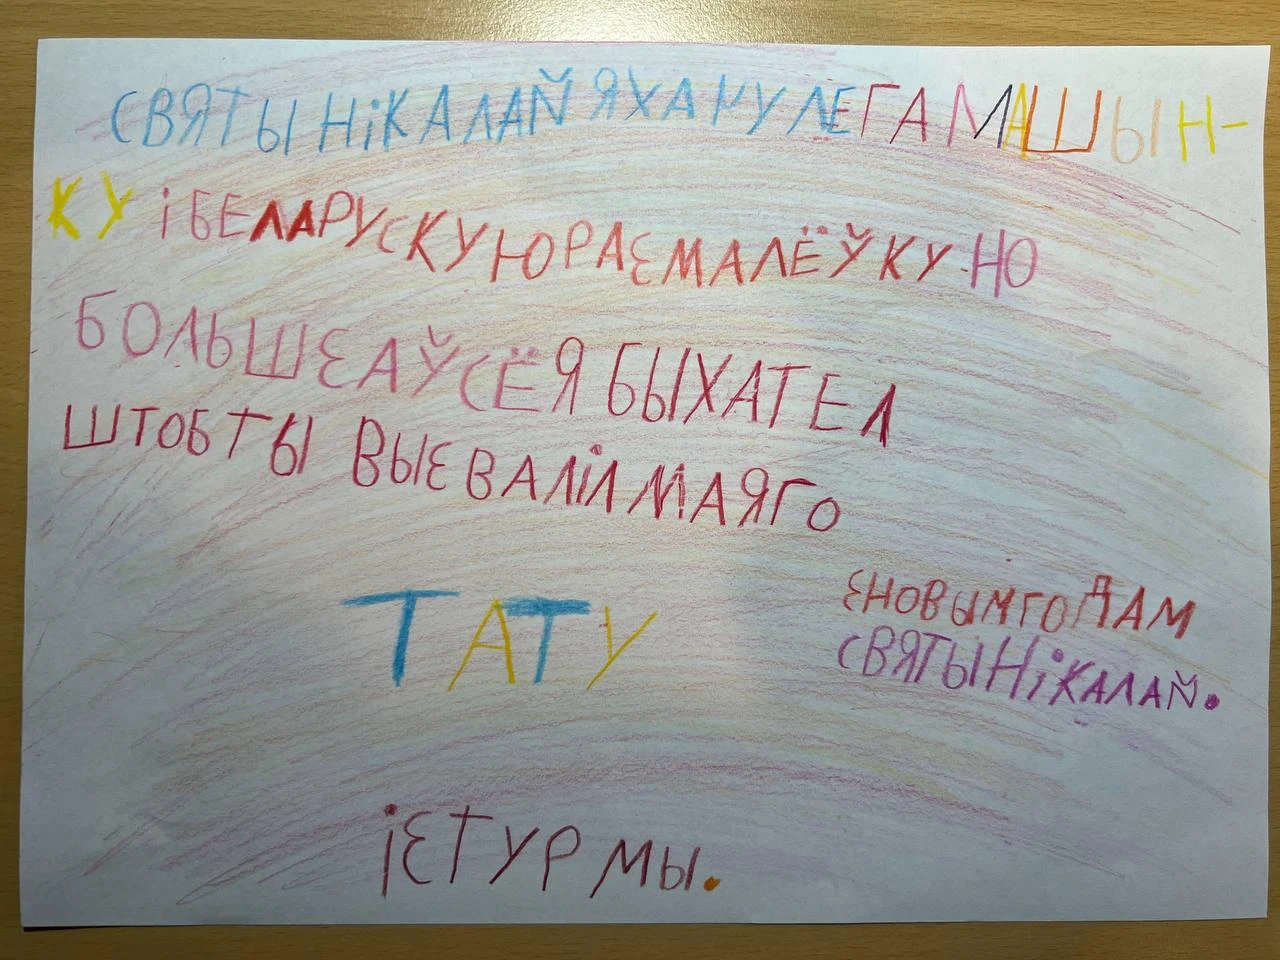 СВЯТЫ НІКАЛАЙ Я ХАЧУ ЛЕГА МАШЫН-
КУ І БЕЛАРУСКУЮ РАЗМАЛЁЎКУ НО
БОЛЬШ ЗА ЎСЁ Я БЫ ХАТЕЛ
ШТОБ ТЫ ВЫЗВАЛІЛ МАЯГО
ТАТУ
ІЗ ТУРМЫ.
З НОВЫМ ГОДАМ
СВЯТЫ НІКАЛАЙ.